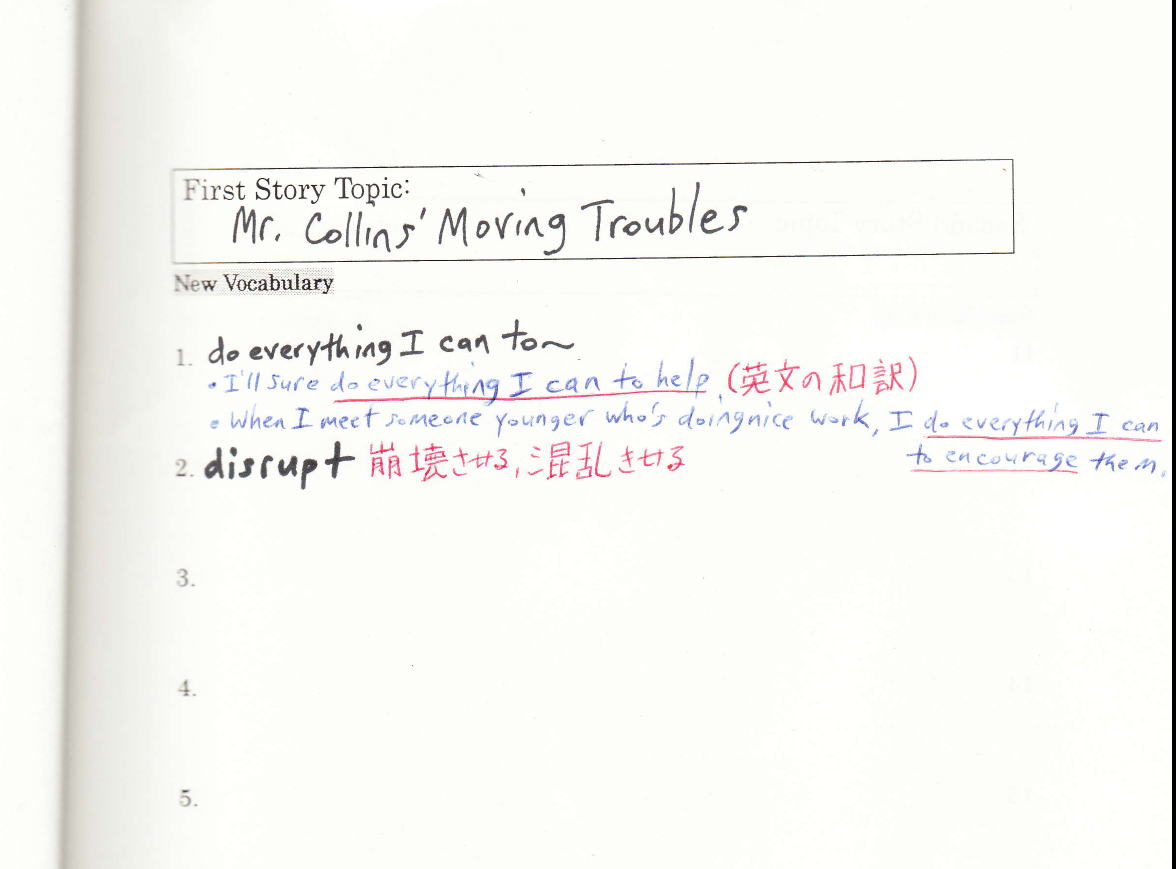 First Story Topic:
Mr. Collins' Moving Troubles
New Vocabulary
1. do everything I can to～
• I'll sure do everything I can to help. (英文の和訳)
• When I meet someone younger who's doing nice work, I do everything I can
to encourage them.
2. disrupt 崩壊させる, 混乱させる
3.
4.
5.